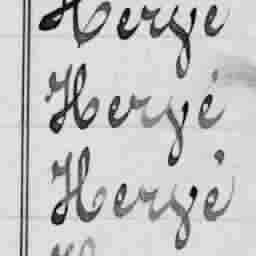 Hergé
Hergé
Hergé